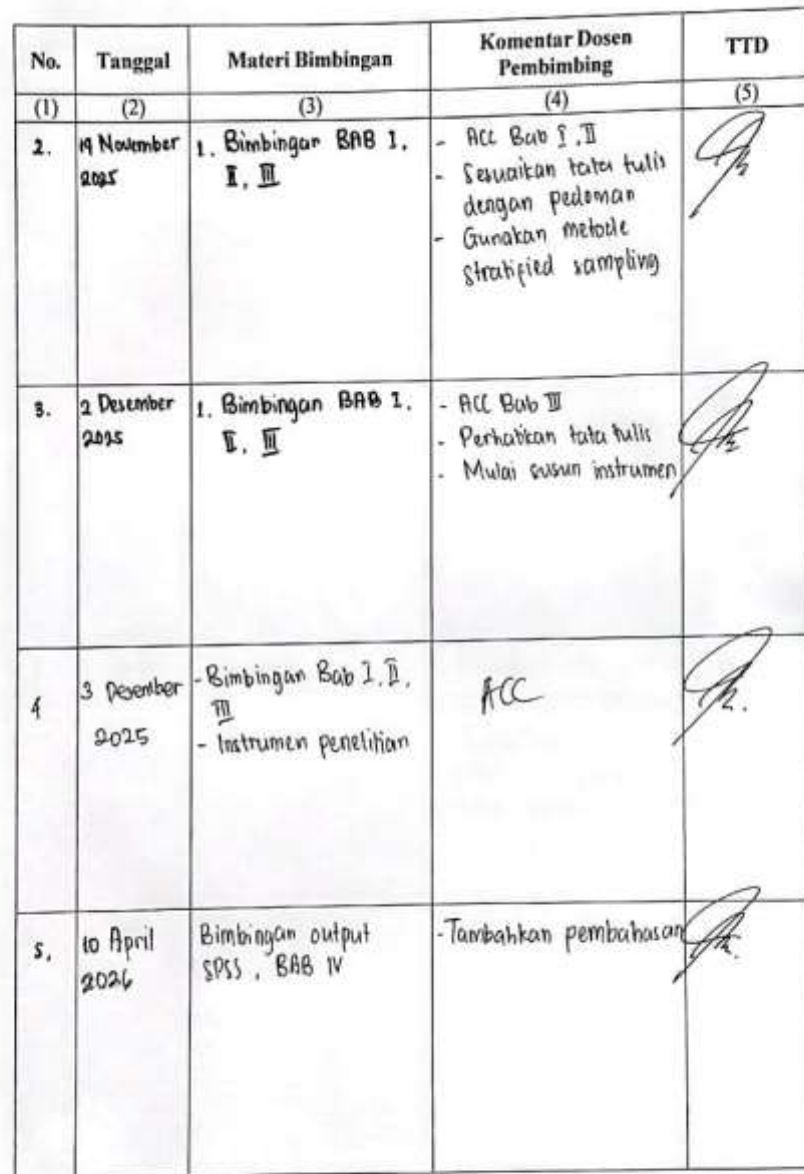 No. Tanggal Materi Bimbingan Komentar Dosen Pembimbing TTD
(1) (2) (3) (4) (5)
2.
19 November
2025
1. Bimbingan BAB I,
II, III
- ACC Bab I, II
- Sesuaikan tata tulis
dengan pedoman
- Gunakan metode
stratified sampling
3.
2 Desember
2025
1. Bimbingan BAB I,
II, III
- ACC Bab III
- Perhatikan tata tulis
- Mulai susun instrumen
4
3 Desember
2025
- Bimbingan Bab I, II,
III
- Instrumen penelitian
ACC
5.
10 April
2026
Bimbingan output
SPSS, BAB IV
- Tambahkan pembahasan